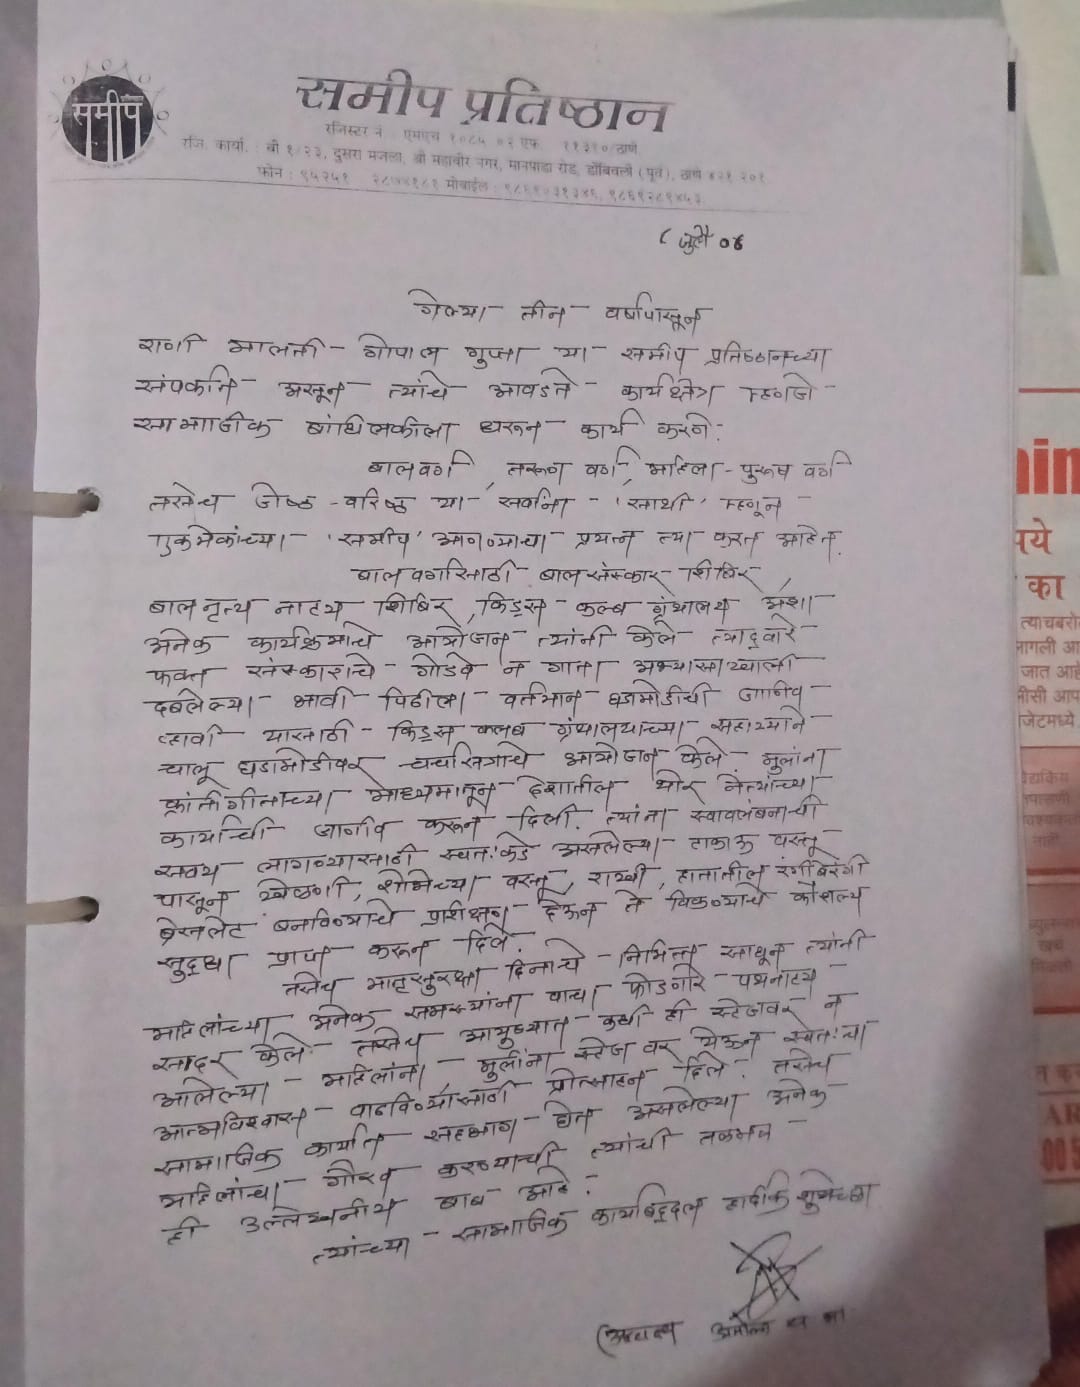 समीप
समीप प्रतिष्ठान
रजिस्टर नं. एमएच १०८५ ०२ एफ. ११३१०/ठाणे
रजि. कार्या. : बी १/२३, दुसरा मजला, श्री महावीर नगर, मानपाडा रोड, डोंबिवली (पूर्व), ठाणे ४२१ २०१.
फोन : ९५२५१ मोबाईल :
८ जुलै ०६
गेल्या तीन वर्षापासून
राणी मालती गोपाल गुप्ता या समीप प्रतिष्ठानच्या
संपर्कात असून त्यांचे आवडते कार्यक्षेत्र म्हणजे
सामाजिक बांधिलकीला धरून कार्य करणे.
बालवर्ग, तरूण वर्ग, महिला - पुरूष वर्ग
तसेच जेष्ठ - वरिष्ठ या सर्वांना 'साथी' म्हणून
एकमेकांच्या 'समीप' आणण्याचा प्रयत्न त्या करत आहेत.
बालवर्गासाठी बालसंस्कार शिबिर,
बालनृत्य नाट्य शिबिर, किड्स कल्ब ग्रंथालय अशा
अनेक कार्यक्रमाचे आयोजन त्यांनी केले त्याद्वारे
फक्त संस्काराचे गोडवे न गाता अभ्यासाखाली
दबलेल्या भावी पिढीला वर्तमान घडामोडींची जाणीव
व्हावी यासाठी किड्स कलब ग्रंथालयाच्या सहाय्याने
चालू घडामोडीवर चर्चासत्राचे आयोजन केले. मुलांना
क्रांतीगीताच्या माध्यमातून देशातील थोर नेत्यांच्या
कार्याची जाणीव करून दिली. त्यांना स्वावलंबनाची
सवय लागण्यासाठी स्वतःकडे असलेल्या टाकाऊ वस्तू
पासून खेळणी, शोभेच्या वस्तू, राखी, हातातील रंगीबेरंगी
ब्रेसलेट बनविण्याचे प्रशिक्षण देऊन ते विकण्याचे कौशल्य
सुद्धा प्राप्त करून दिले.
तसेच मातृसुरक्षा दिनाचे निमित्त साधून त्यांनी
महिलांच्या अनेक समस्यांना वाचा फोडणारे पथनाट्य
सादर केले. तसेच आयुष्यात कधी ही स्टेजवर न
आलेल्या महिलांना मुलींना स्टेज वर येऊन स्वतःचा
आत्मविश्वास वाढविण्यासाठी प्रोत्साहन दिले. तसेच
सामाजिक कार्यात सहभाग घेत असलेल्या अनेक
महिलांचा गौरव करण्याची त्यांची तळमळ
ही उल्लेखनीय बाब आहे.
त्यांच्या सामाजिक कार्याबद्दल हार्दीक शुभेच्छा
पये
का
त्याचबरो
जात आहे